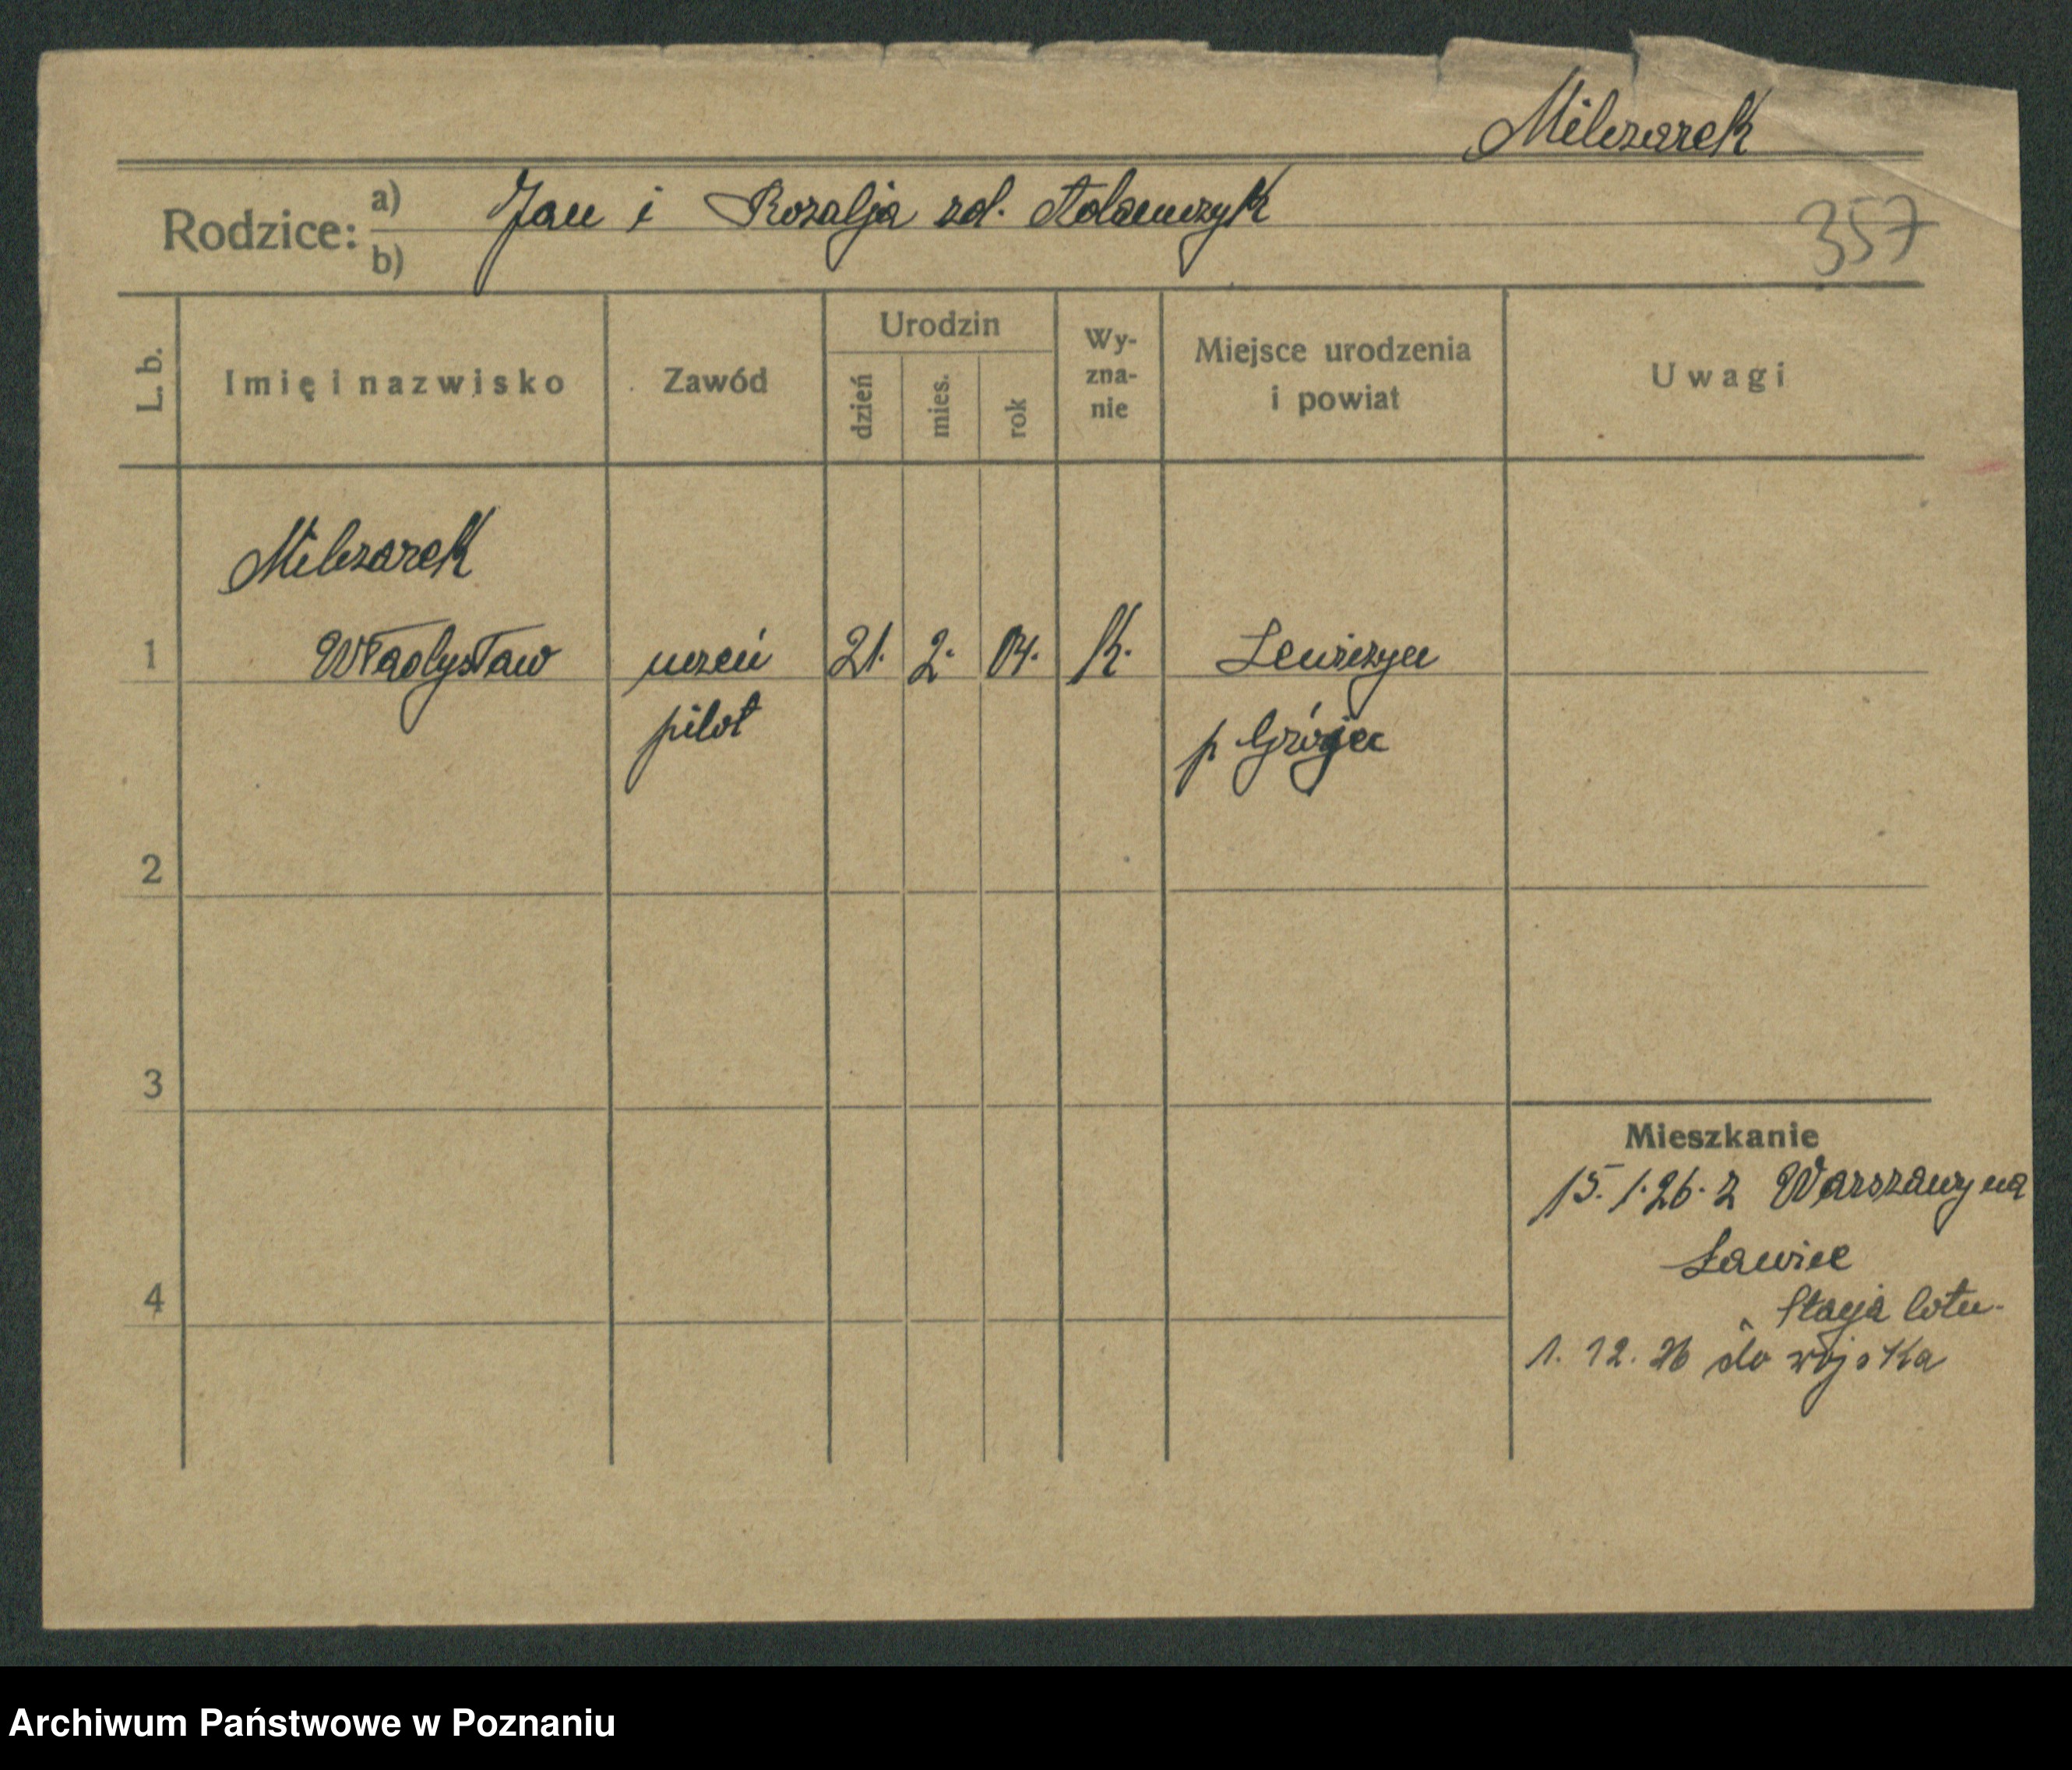 Milczarek
Rodzice: a) Jan i Rozalja zd. Adamczyk
b)
357
L. b.
Imię i nazwisko
Zawód
Urodzin
dzień
mies.
rok
Wy-
zna-
nie
Miejsce urodzenia
i powiat
Uwagi
Milczarek
1 Władysław uczeń 21. 2. 04. K.
pilot p Grójec
2
3
4
Mieszkanie
15. 1. 26. z Warszawy na
Ławice
Stacja lotn.
1. 12. 26 do wojska
Archiwum Państwowe w Poznaniu